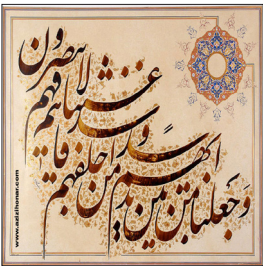 وَجَعَلنا مِن بَین اَیدیهم
سداً و من خلفهم
سداً فاغشیناهم فهم
لا یبصرون
www.azizihonar.com